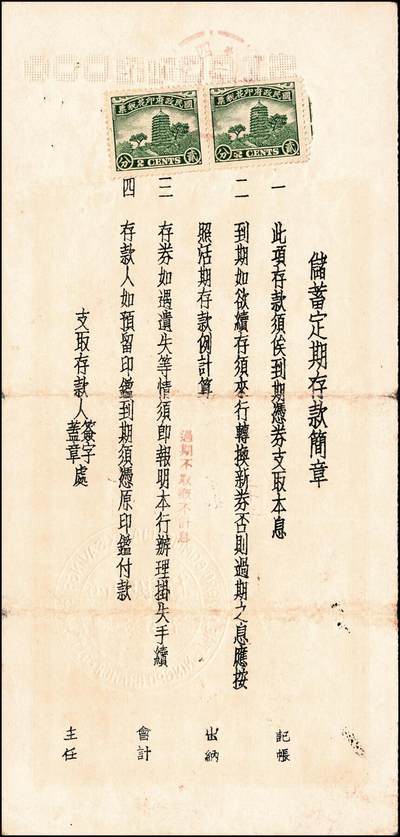 國民政府印花稅票
貳 2 CENTS 分
國民政府印花稅票
貳 2 CENTS 分
儲蓄定期存款簡章
一 此項存款須俟到期憑券支取本息
二 到期如欲續存須來行轉換新券否則過期之息應按
照活期存款例計算
三 存券如遇遺失等情須即報明本行辦理掛失手續
四 存款人如預留印鑑到期須憑原印鑑付款
支取存款人簽字蓋章處
過期不取概不計息
記帳
出納
會計
主任